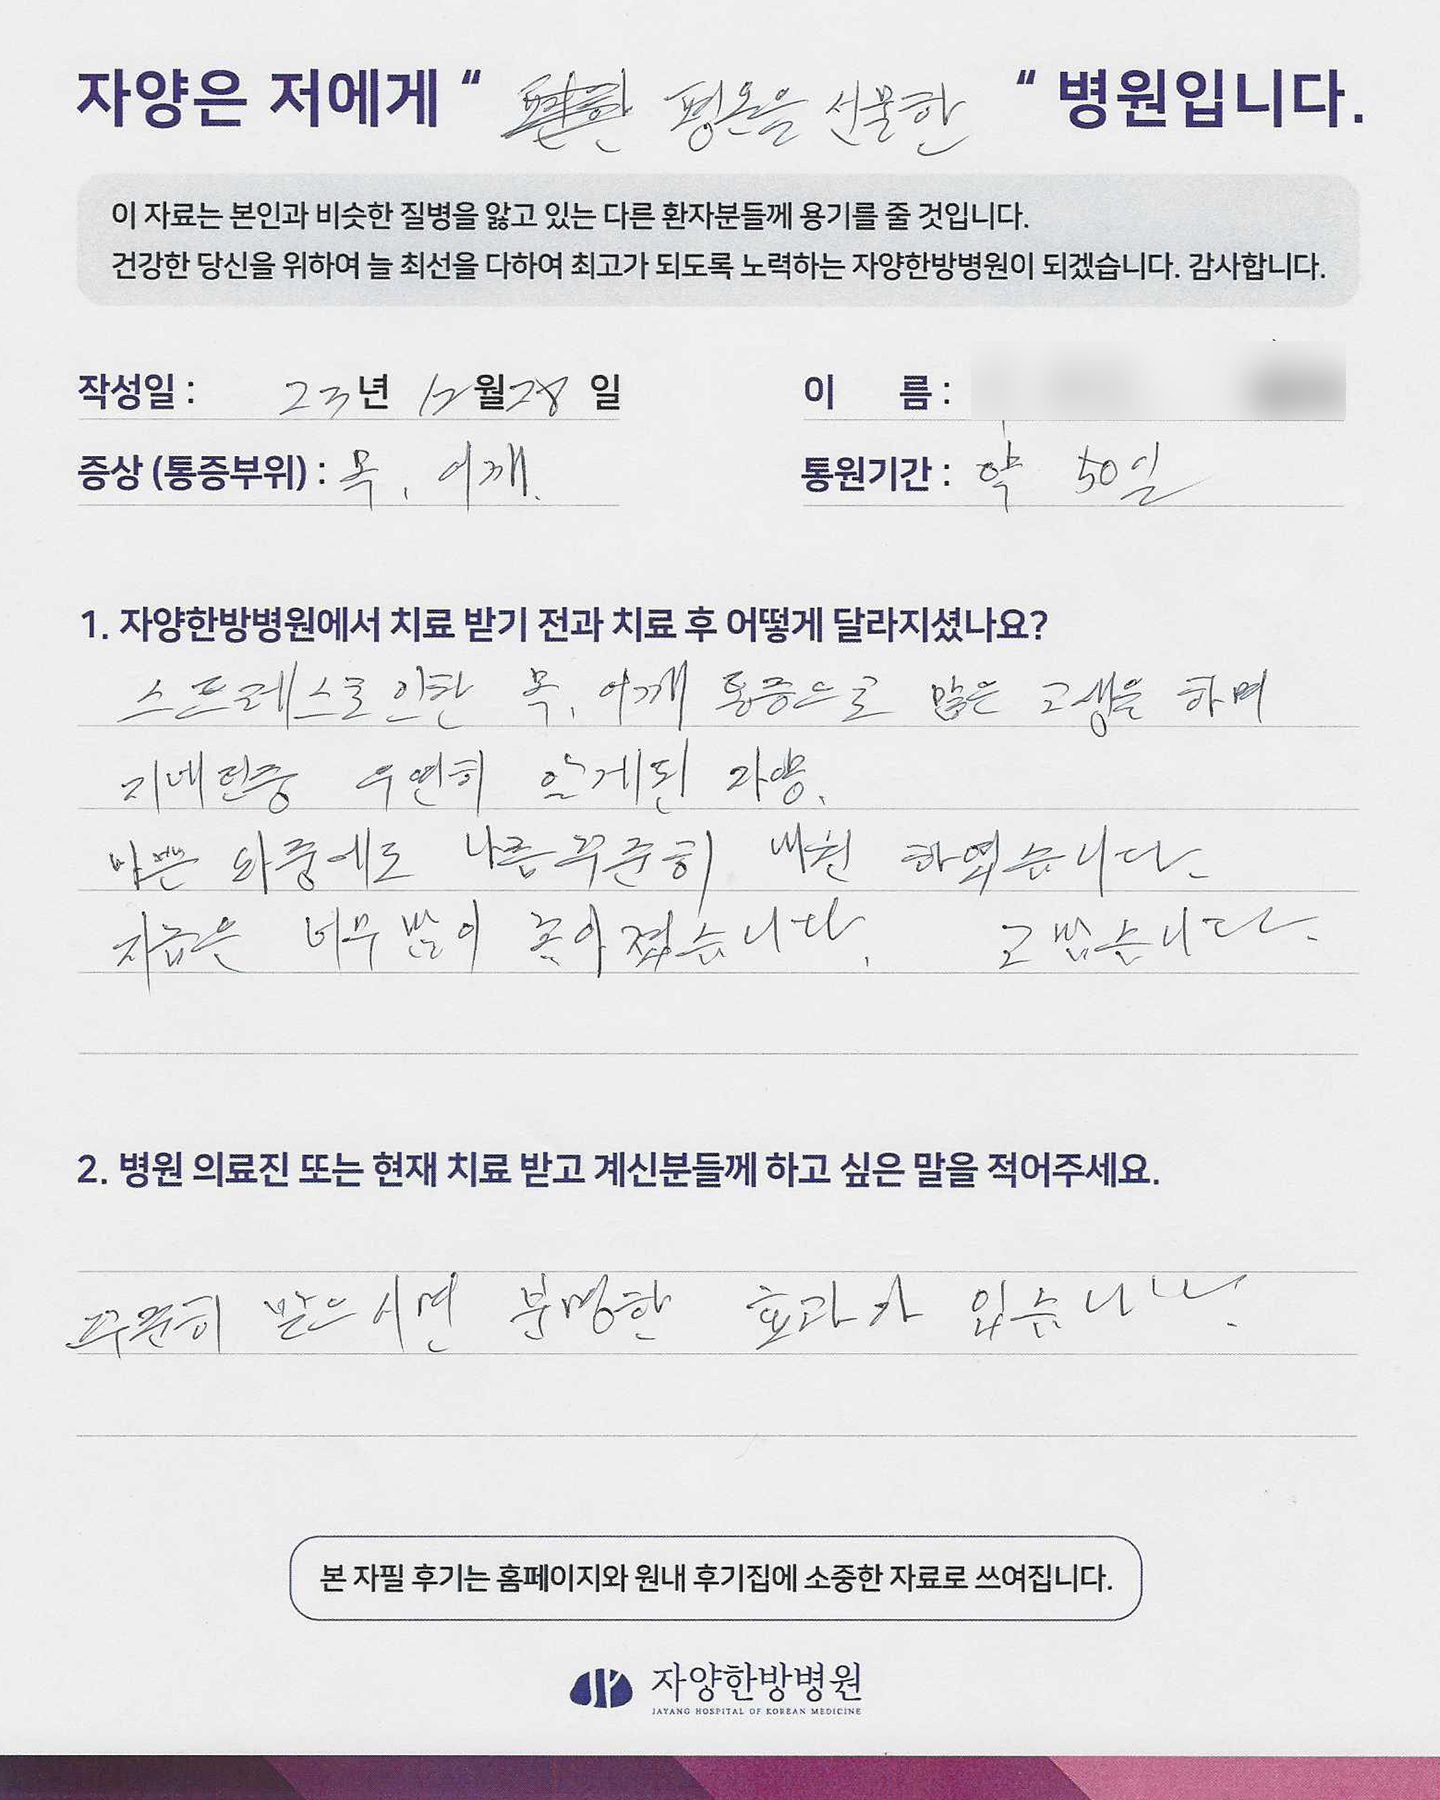 자양은 저에게 “ 평온을 선물한 “ 병원입니다.
이 자료는 본인과 비슷한 질병을 앓고 있는 다른 환자분들께 용기를 줄 것입니다.
건강한 당신을 위하여 늘 최선을 다하여 최고가 되도록 노력하는 자양한방병원이 되겠습니다. 감사합니다.
작성일 : 23년 12월 28일 이 름 :
증상 (통증부위) : 목, 어깨. 통원기간 : 약 50일
1. 자양한방병원에서 치료 받기 전과 치료 후 어떻게 달라지셨나요?
스트레스로 인한 목, 어깨 통증으로 많은 고생을 하며
지내던중 우연히 알게된 자양.
바쁜 와중에도 나름 꾸준히 내원 하였습니다.
지금은 너무 많이 좋아졌습니다. 고맙습니다.
2. 병원 의료진 또는 현재 치료 받고 계신분들께 하고 싶은 말을 적어주세요.
꾸준히 받으시면 분명한 효과가 있습니다.
본 자필 후기는 홈페이지와 원내 후기집에 소중한 자료로 쓰여집니다.
자양한방병원
JAYANG HOSPITAL OF KOREAN MEDICINE